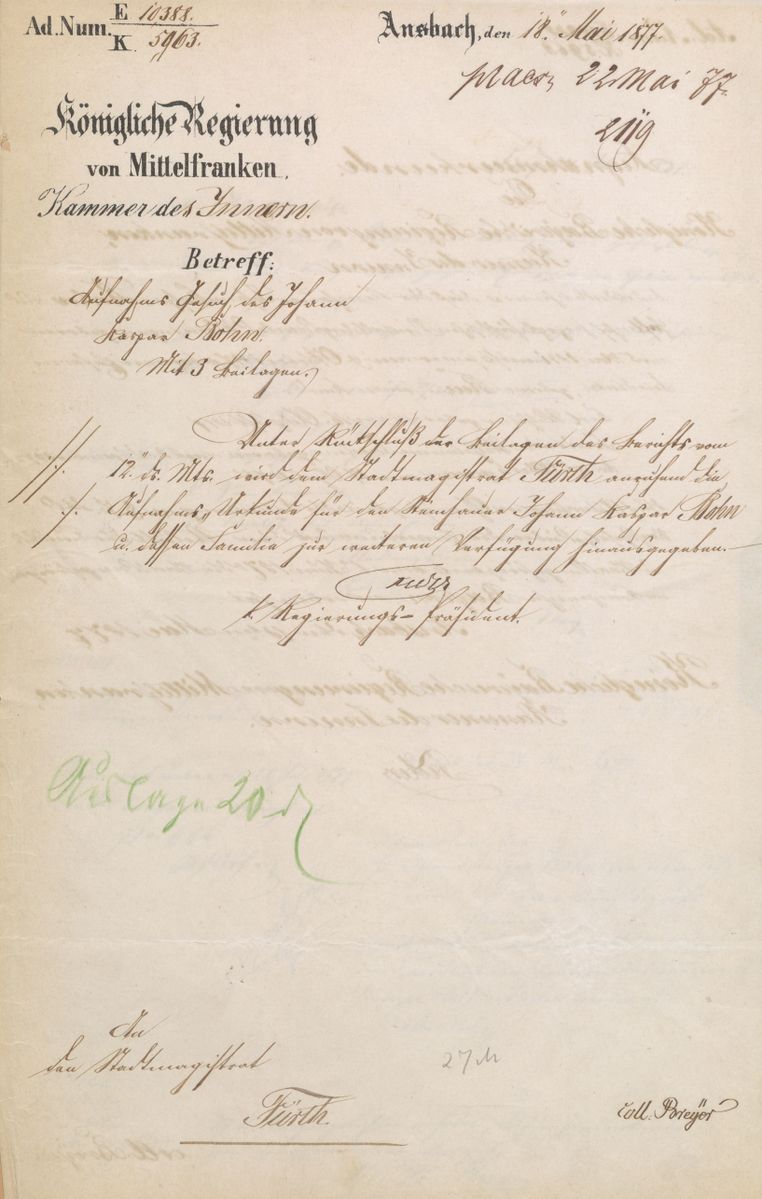 Ad. Num. E 10388.
K 5963.
Ansbach, den 18. Mai 1877.
praes. 22 Mai 77.
Königliche Regierung
von Mittelfranken,
Kammer des Innern.
Betreff:
Aufnahms Gesuch des Johann
Kaspar Bohn.
Mit 3 Beilagen.
Unter Rückschluß der Beilagen des Berichts vom
12. ds. Mts. wird dem Stadtmagistrat Fürth anruhend die
Aufnahms-Urkunde für den Steinhauer Johann Kaspar Bohn
u. dessen Familie zur weiteren Verfügung hinausgegeben.
k. Regierungs-Präsident.
Auslage 20 d
An
den Stadtmagistrat
27 M
Fürth.
coll. Breyer